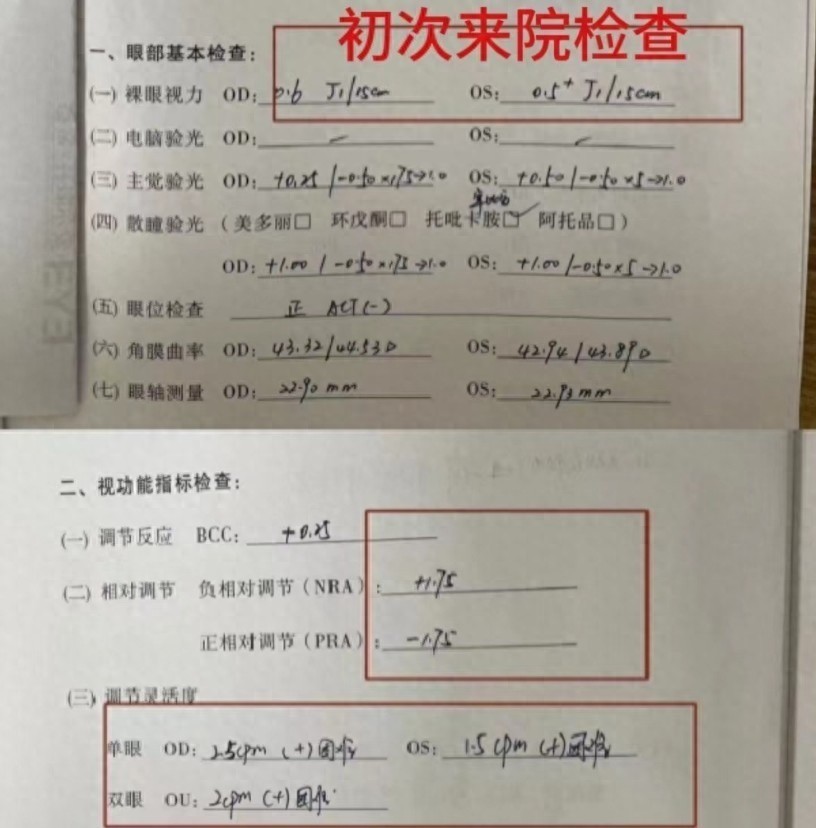 初次来院检查
一、眼部基本检查：
(一) 裸眼视力 OD: 0.6 J1/15cm OS: 0.5⁺ J1/15cm
(二) 电脑验光 OD: OS:
(三) 主觉验光 OD: +0.25/-0.50×175→1.0 OS: +0.50/-0.50×5→1.0
(四) 散瞳验光（美多丽□ 环戊酮□ 托吡卡胺☑ 阿托品□）
OD: +1.00/-0.50×175→1.0 OS: +1.00/-0.50×5→1.0
(五) 眼位检查 正 ACT(-)
(六) 角膜曲率 OD: 43.32/44.53D OS: 42.94/43.89D
(七) 眼轴测量 OD: 22.90mm OS: 22.93mm
二、视功能指标检查：
(一) 调节反应 BCC: +0.25
(二) 相对调节 负相对调节（NRA）: +1.75
正相对调节（PRA）: -1.75
(三) 调节灵活度
单眼 OD: 2.5cpm (+)困难 OS: 1.5cpm (+)困难
双眼 OU: 2cpm (+)困难